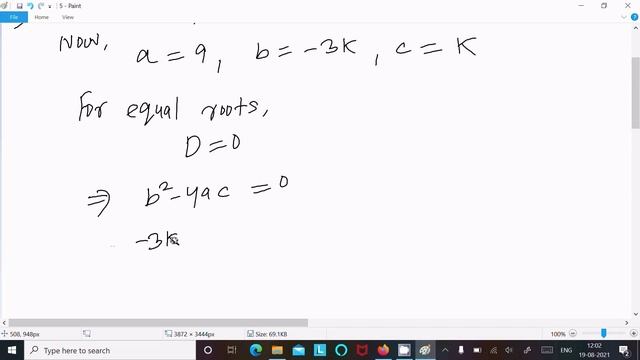 5 - Paint
File Home View
Now, a = 9, b = -3K, c = K
For equal roots,
D = 0
⇒ b² - 4ac = 0
-3K
508, 948px 3872 × 3444px Size: 69.1KB 100%
Type here to search ENG 12:02
19-08-2021